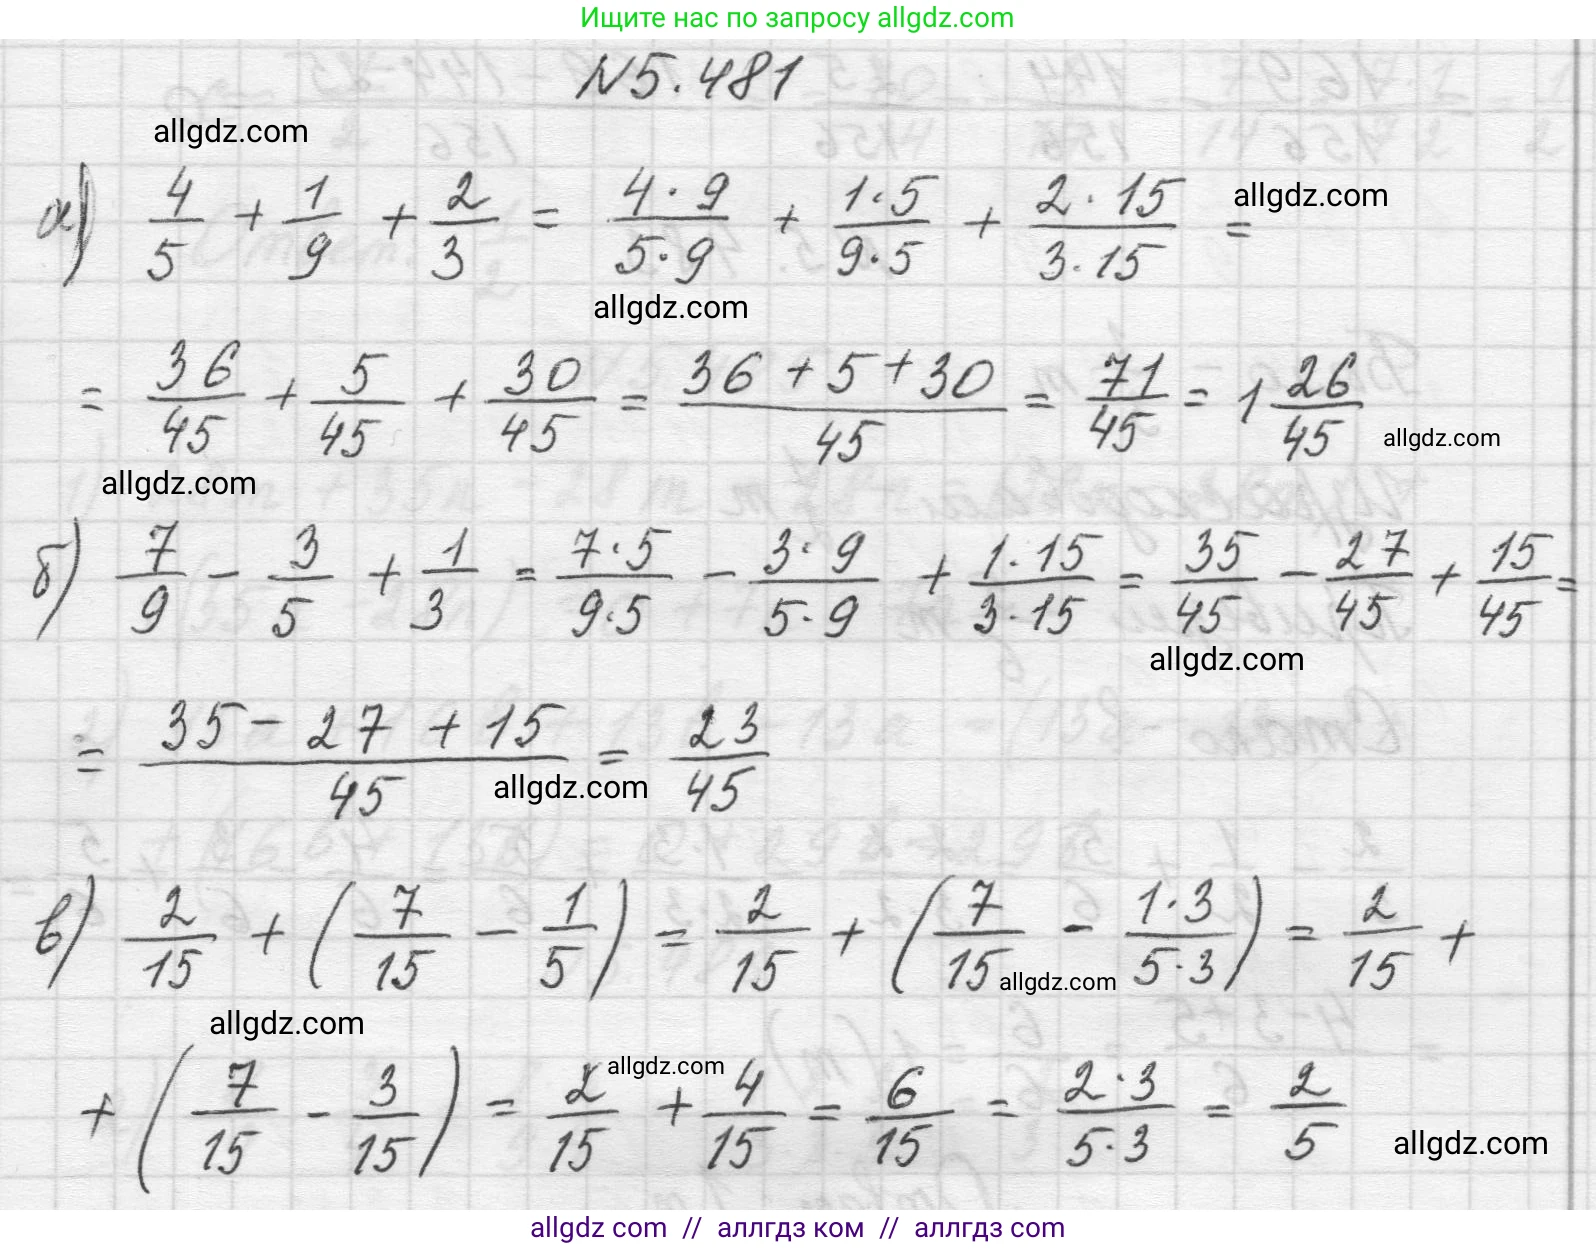 Ищите нас по запросу allgdz.com
N5.481
allgdz.com
а) 4/5 + 1/9 + 2/3 = 4·9/5·9 + 1·5/9·5 + 2·15/3·15 = allgdz.com
allgdz.com
= 36/45 + 5/45 + 30/45 = 36+5+30/45 = 71/45 = 1 26/45 allgdz.com
allgdz.com
б) 7/9 - 3/5 + 1/3 = 7·5/9·5 - 3·9/5·9 + 1·15/3·15 = 35/45 - 27/45 + 15/45 =
allgdz.com
= 35-27+15/45 = 23/45
allgdz.com
в) 2/15 + (7/15 - 1/5) = 2/15 + (7/15 - 1·3/5·3) = 2/15 +
allgdz.com
allgdz.com
allgdz.com
+ (7/15 - 3/15) = 2/15 + 4/15 = 6/15 = 2·3/5·3 = 2/5
allgdz.com
allgdz.com // аллгдз ком // аллгдз com